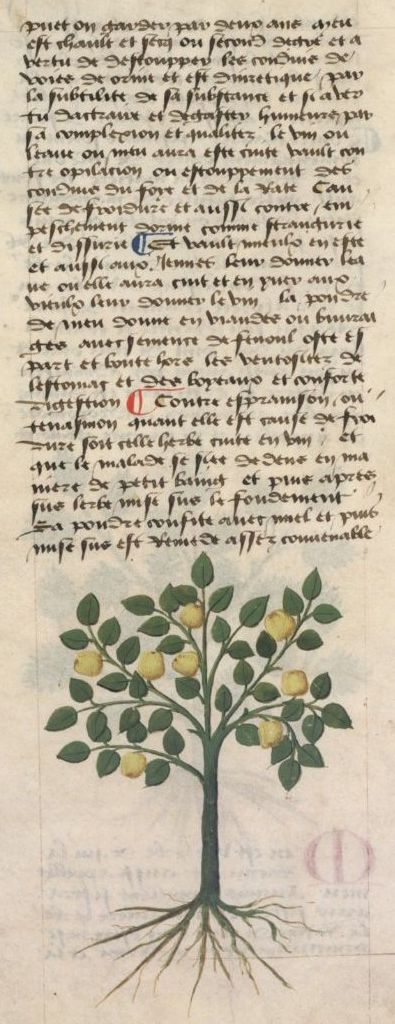 puet on garder par deux ans meu
est chault et secq ou second degre et a
vertu de destoupper les conduis de
voies de orine et est diuretique par
la subtilite de sa substance et si a ver
tu dactraire et degaster humeurs par
sa complexion et qualitez le vin ou
leaue ou meu aura este cuite vault con
tre opilation ou estouppement des
conduis du foye et de la rate Cau
see de froidure et aussi contre em
peschement dorine comme strangurie
et dissurie Et vault mieulx en este
et aussi aux Jennes leur donner lea
ue ou elle aura cuit et en yuer aux
vieulx leur donner le vin la pouldre
de meu donne en viandes ou buurai
ges auec semence de fenoul oste es
part et boute hors les ventositez de
lestomac et des boyeaux et conforte
digestion Contre esprainson ou
tenasmon quant elle est cause de froi
dure soit celle herbe cuite en vin et
que le malade se siee dedens en ma
niere de petit baing et puis apres
sus lerbe mise sus le fondement
La pouldre confite auec miel et puis
mise sus est remede assez conuenable